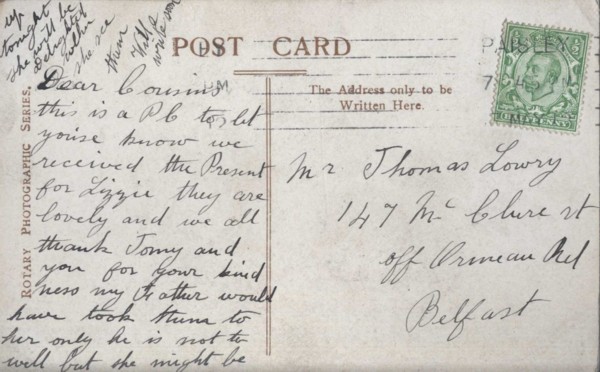 POST CARD
The Address only to be
Written Here.
ROTARY PHOTOGRAPHIC SERIES.
PAISLEY
Dear Cousins
this is a PC to let
youse know we
received the Present
for Lizzie they are
lovely and we all
thank Tomy and
you for your kind
ness my Father would
have took them to
her only he is not to
well but she might be
up
tonight
she will be
Delighted
when
she see
them Will
write soon
Mr Thomas Lowry
147 Mc Clure st
off Ormeau Rd
Belfast